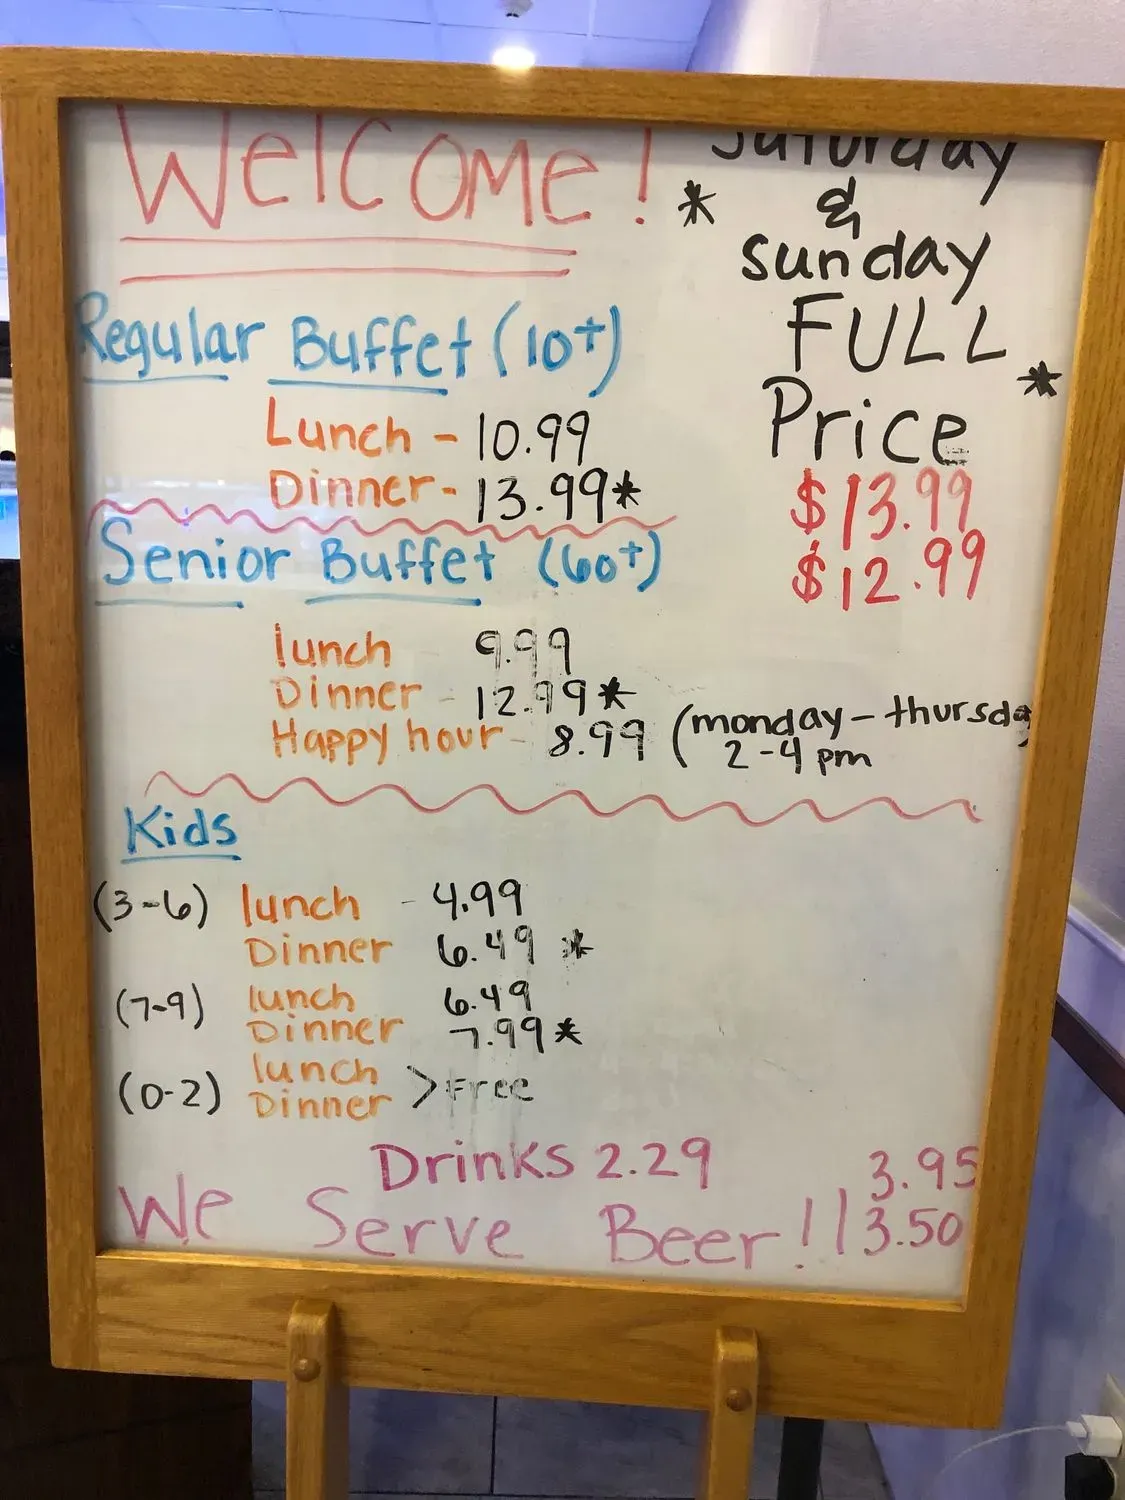 Welcome!
Regular Buffet (10+)
Lunch - 10.99
Dinner - 13.99*
Senior Buffet (60+)
lunch 9.99
Dinner - 12.99*
Happy hour - 8.99 (monday - thursday
2-4 pm
Kids
(3-6) lunch - 4.99
Dinner 6.49 *
(7-9) lunch 6.49
Dinner 7.99*
(0-2) lunch
Dinner > Free
Drinks 2.29
We Serve Beer!!
3.95
3.50
Saturday
* &
sunday
FULL
Price *
$13.99
$12.99